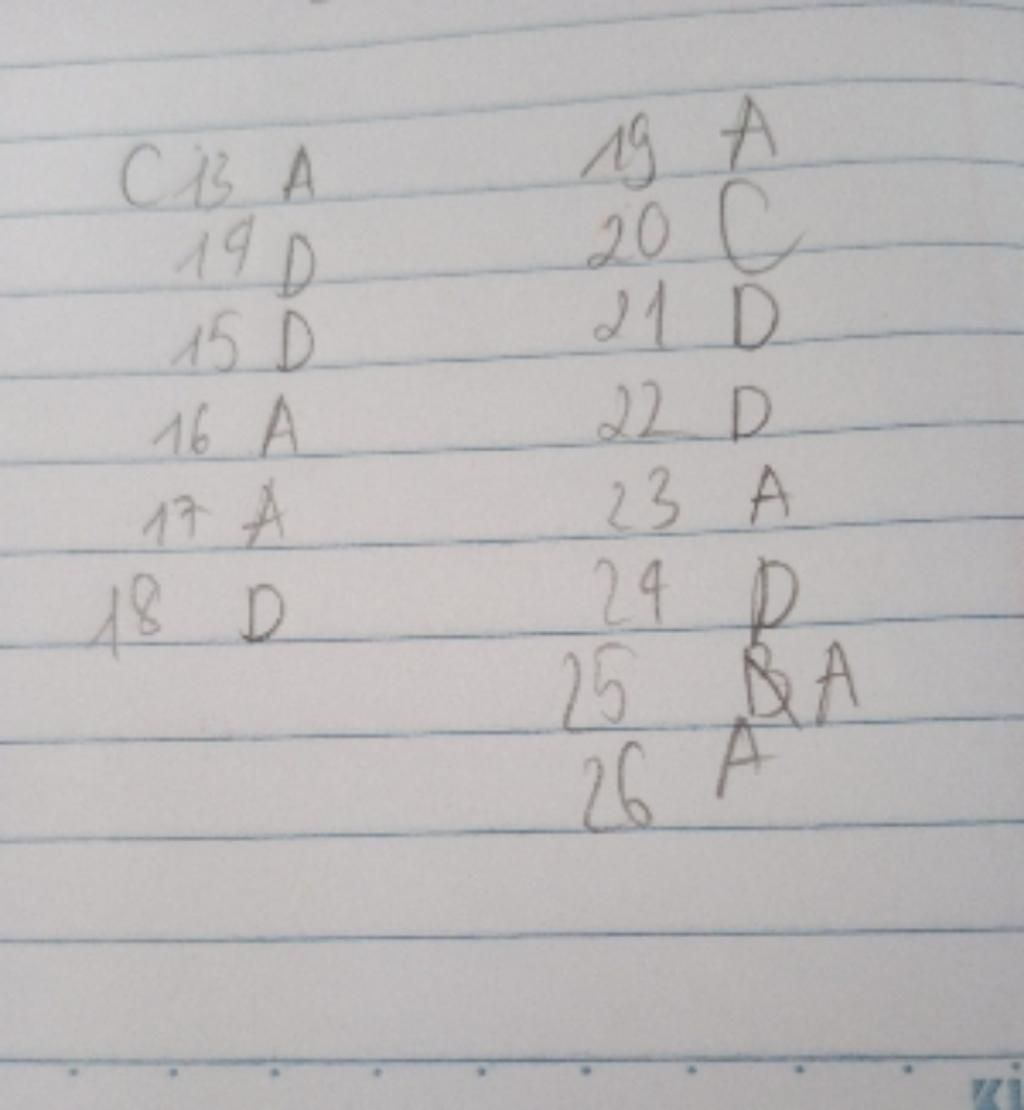 C 13 A
14 D
15 D
16 A
17 A
18 D
19 A
20 C
21 D
22 D
23 A
24 D
25 B A
26 A
Ki